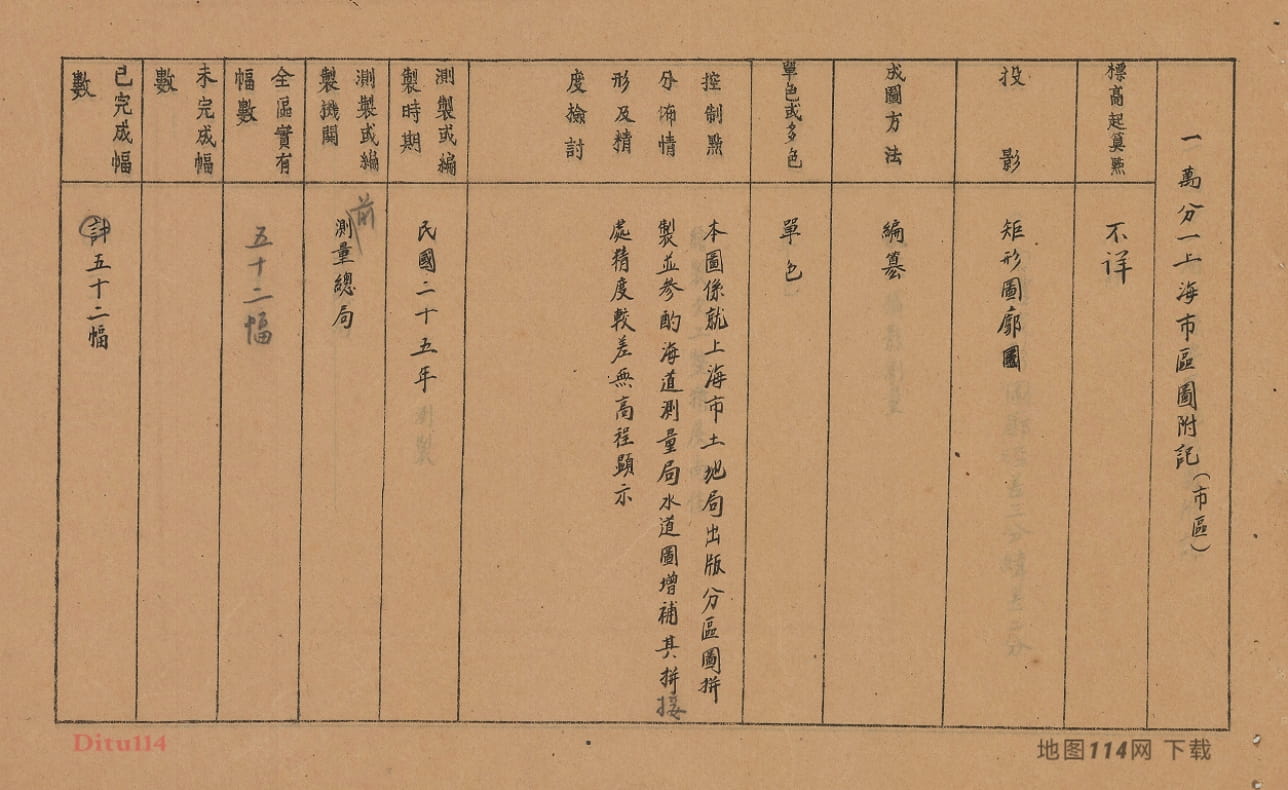 一萬分一上海市區圖附記（市區）
標高起算點
不详
投影
矩形圖廓圖
成圖方法
編纂
單色或多色
單色
控制點
分佈情
形及精
度檢討
本圖係就上海市土地局出版分區圖拼
製並参酌海道測量局水道圖增補其拼接
處精度較差無高程顯示
測製或編
製時期
民國二十五年
測製
測製或編
製機関
前
測量總局
全區實有
幅數
五十二幅
未完成幅
數
已完成幅
數
計五十二幅
Ditu114
地图114网 下载